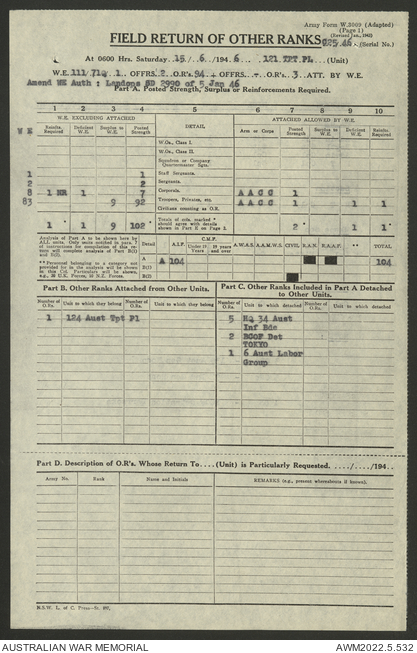 Army Form W.3009 (Adapted)
(Page 1)
FIELD RETURN OF OTHER RANKS
(Serial No.)
At 0600 Hrs. Saturday 15/6/1946 121 TPT.PL. (Unit)
W.E. 111/71Q 1 OFFRS. 2 OR's. 94 + OFFRS. - OR's. 3 ATT. BY W.E.
Amend WE Auth: Landops SD 2990 of 5 Jan 46
Part A. Posted Strength, Surplus or Reinforcements Required.
1 2 3 4 5 6 7 8 9 10
W.E. EXCLUDING ATTACHED ATTACHED ALLOWED BY W.E.
W E Reinfts. Required Deficient W.E. Surplus to W.E. Posted Strength DETAIL Arm or Corps Posted Strength Deficient W.E. Surplus to W.E. Reinfts. Required
W.Os., Class I.
W.Os., Class II.
Squadron or Company Quartermaster Sgts.
1 1 Staff Sergeants.
2 2 Sergeants.
8 1 NR 1 7 Corporals. A A C C 1
83 9 92 Troopers, Privates, etc. A A C C 1 1 1
Civilians counting as O.R.
1 * 9 102 * Totals of cols. marked * should agree with details shown in Part E on Page 2. 2 * 1 1 *
Analysis of Part A to be shown here by ALL units. Only units notified in para. 7 of instructions for compilation of this return will complete analysis of Part B(1) and B(2).
Detail A.I.F. C.M.F. Under 19 years 19 years and over A.W.A.S. A.A.M.W.S. CIVIL R.A.N. R.A.A.F. ** TOTAL
A A 104 104
B(1)
B(2)
Part B. Other Ranks Attached from Other Units.
Number of O.Rs. Unit to which they belong Number of O.Rs. Unit to which they belong
1 124 Aust Tpt Pl
Part C. Other Ranks Included in Part A Detached to Other Units.
Number of O.Rs. Unit to which detached Number of O.Rs. Unit to which detached
5 HQ 34 Aust
Inf Bde
2 BCOF Det
TOKYO
1 6 Aust Labor
Group
Part D. Description of O.R's. Whose Return To....(Unit) is Particularly Requested...../...../194..
Army No. Rank Name and Initials REMARKS (e.g., present whereabouts if known).
AUSTRALIAN WAR MEMORIAL AWM2022.5.532